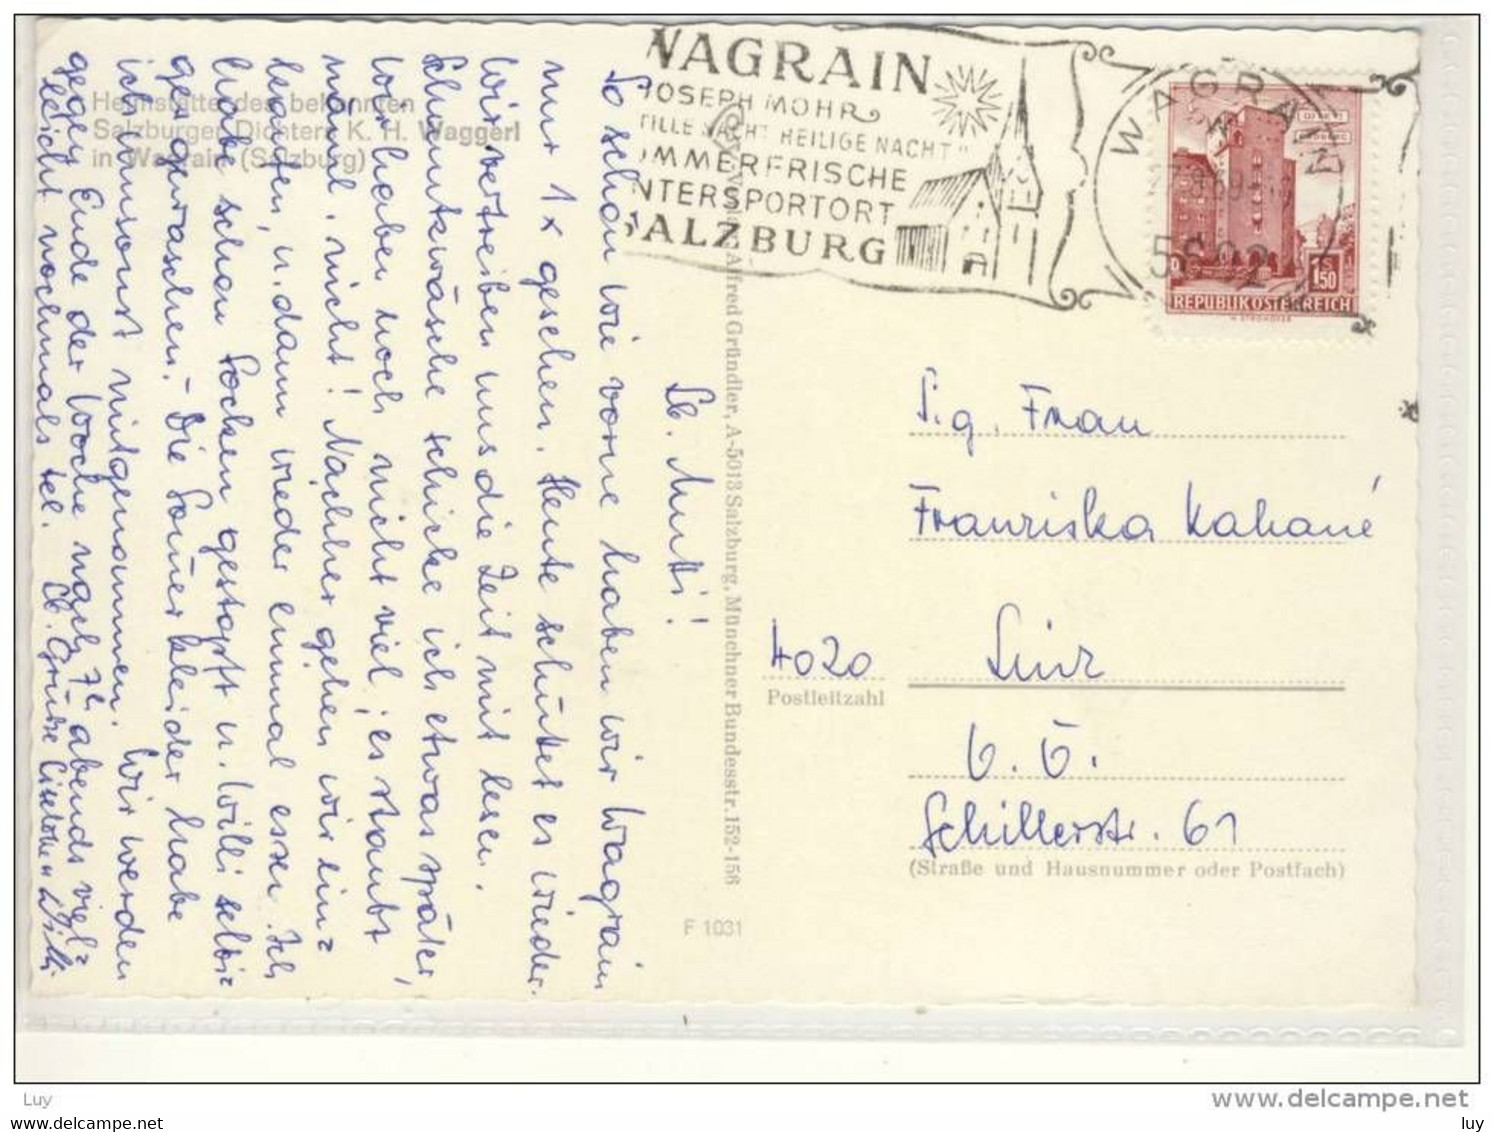 Heimstätte des bekannten
Salzburger Dichters K. H. Waggerl
in Wagrain (Salzburg)
WAGRAIN
JOSEPH MOHR
TILLE NACHT HEILIGE NACHT"
OMMERFRISCHE
NTERSPORTORT
SALZBURG
WAGRAIN
5602
1.50
S
REPUBLIK ÖSTERREICH
Lb. Mutti!
So schön wie vorne haben wir Wagrain
nur 1x gesehen. Heute schüttet es wieder.
Wir vertreiben uns die Zeit mit lesen.
Schmutzwäsche schicke ich etwas später,
wir haben noch nicht viel, es staubt
näml. nicht! Nachher gehen wir ein=
kaufen, u. dann wieder einmal essen. Ich
habe schon Socken gestopft u. Willi selbst
gewaschen. - Die Somerkleider habe
ich umsonst mitgenommen. Wir werden
gegen Ende der Woche nach 7h abends viel=
leicht nochmals tel. Lb. Grüße Liselotte u Willi
Verlag Alfred Gründler, A-5013 Salzburg, Münchner Bundesstr. 152-156
F 1031
P.g. Frau
Franziska Kahané
4020 Linz
Postleitzahl
O.Ö.
Schillerstr. 61
(Straße und Hausnummer oder Postfach)
Luy
www.delcampe.net
luy